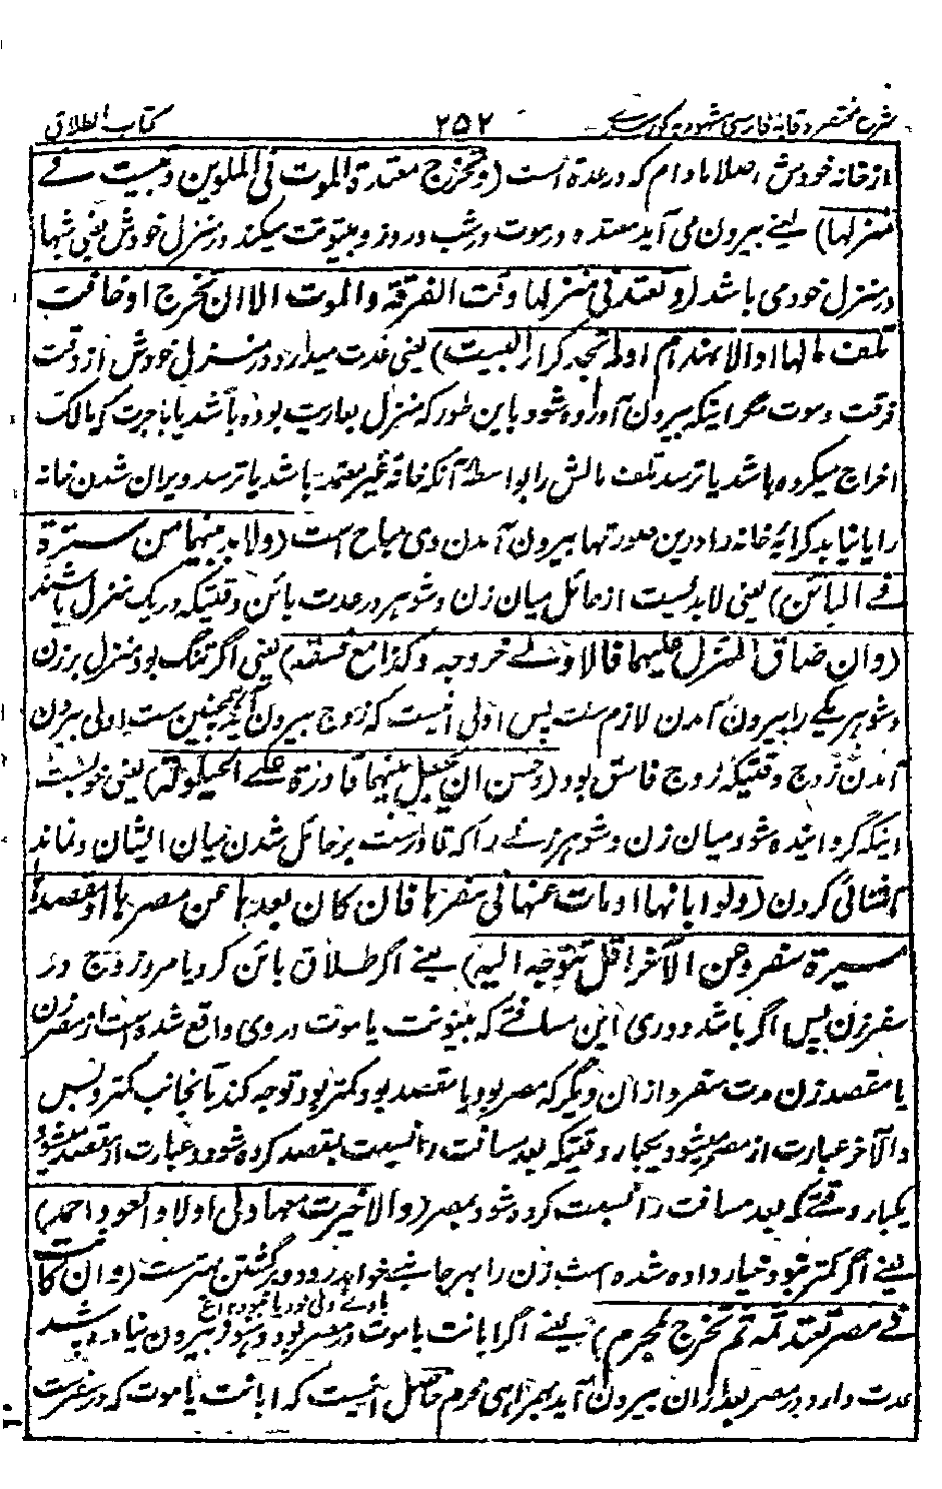 شرح مختصر وقایه فارسی مشهور به کور ۲۵۲ کتاب الطلاق
از خانه خودش اصلا مادام که در عدة است (وتخرج معتدة الموت فی الملوین وتبیت فے
منزلها) یعنے بیرون می آید معتده در موت در شب و روز و بیتوتت میکند در منزل خودش یعنی شبها
در منزل خود می باشد (وتعتد فی منزلها وقت الفرقة والموت الا ان تخرج او خافت
تلف مالها او الانهدام او لم تجد کراء البیت) یعنی عدت میدارد در منزل خودش از وقت
فرقت و موت مگر اینکه بیرون آورده شود باین طور که منزل بعاریت بوده باشد یا باجرت که مالک
اخراج میکرده باشد یا ترسد تلف مالش را بواسطه آنکه خانه غیر معتمد باشد یا ترسد ویران شدن خانه
را یا نیابد کرایه خانه را درین صورتها بیرون آمدن وی مباح است (ولا بد بینهما من سترة
فے البائن) یعنی لابد نیست از حائل میان زن و شوهر در عدت بائن وقتیکه در یک منزل باشند
(وان ضاق المنزل علیهما فالاولے خروجه وکذا مع فسقه) یعنی اگر تنگ بود منزل بر زن
و شوهر یکے را بیرون آمدن لازم ست پس اولی آنست که زوج بیرون آید همچنین ست اولی بیرون
آمدن زوج وقتیکه زوج فاسق بود (وحسن ان یجعل بینهما قادرة علے الحیلولة) یعنی خوبست
اینکه گردانیده شود میان زن و شوهر زنے را که قادرست بر حائل شدن میان ایشان و نماند
گردن (ولو ابانها او مات عنها فی سفرها فان کان بعدها عن مصرها او مقصدها
مسیرة سفر وعن الآخر اقل تتوجه الیه) یعنے اگر طلاق بائن کرد یا مرد زوج در
سفر زن پس اگر باشد دوری این مسافتے که بینونت یا موت در وی واقع شده است از مصر زن
یا مقصد زن مدت سفر و از آن دیگر که مصر بود یا مقصد بود کمتر بود توجه کند تا بجانب کمتر و پس
والآخر عبارت از مصر میشود یکبار وقتیکه بعد مسافت را نسبت بمقصد کرده شود و عبارت از مقصد میشود
یکبار وقتے که بعد مسافت را نسبت کرده شود بمصر (والا خیرت معها ولی او لا والعود احمد)
یعنے اگر کمتر نبود خیار داده شده است زن را بهر جانبے خواهد رود و برگشتن بهترست (وان کانت
با وے ولی بود یا نبود
فے مصر تعتد ثمه ثم تخرج بمحرم) یعنے اگر ابانت یا موت در مصر بود و هنوز بیرون نیامده باشد
عدت دارد در مصر بعد از آن بیرون آید بهمراهی محرم حاصل آنست که ابانت یا موت که در غربت